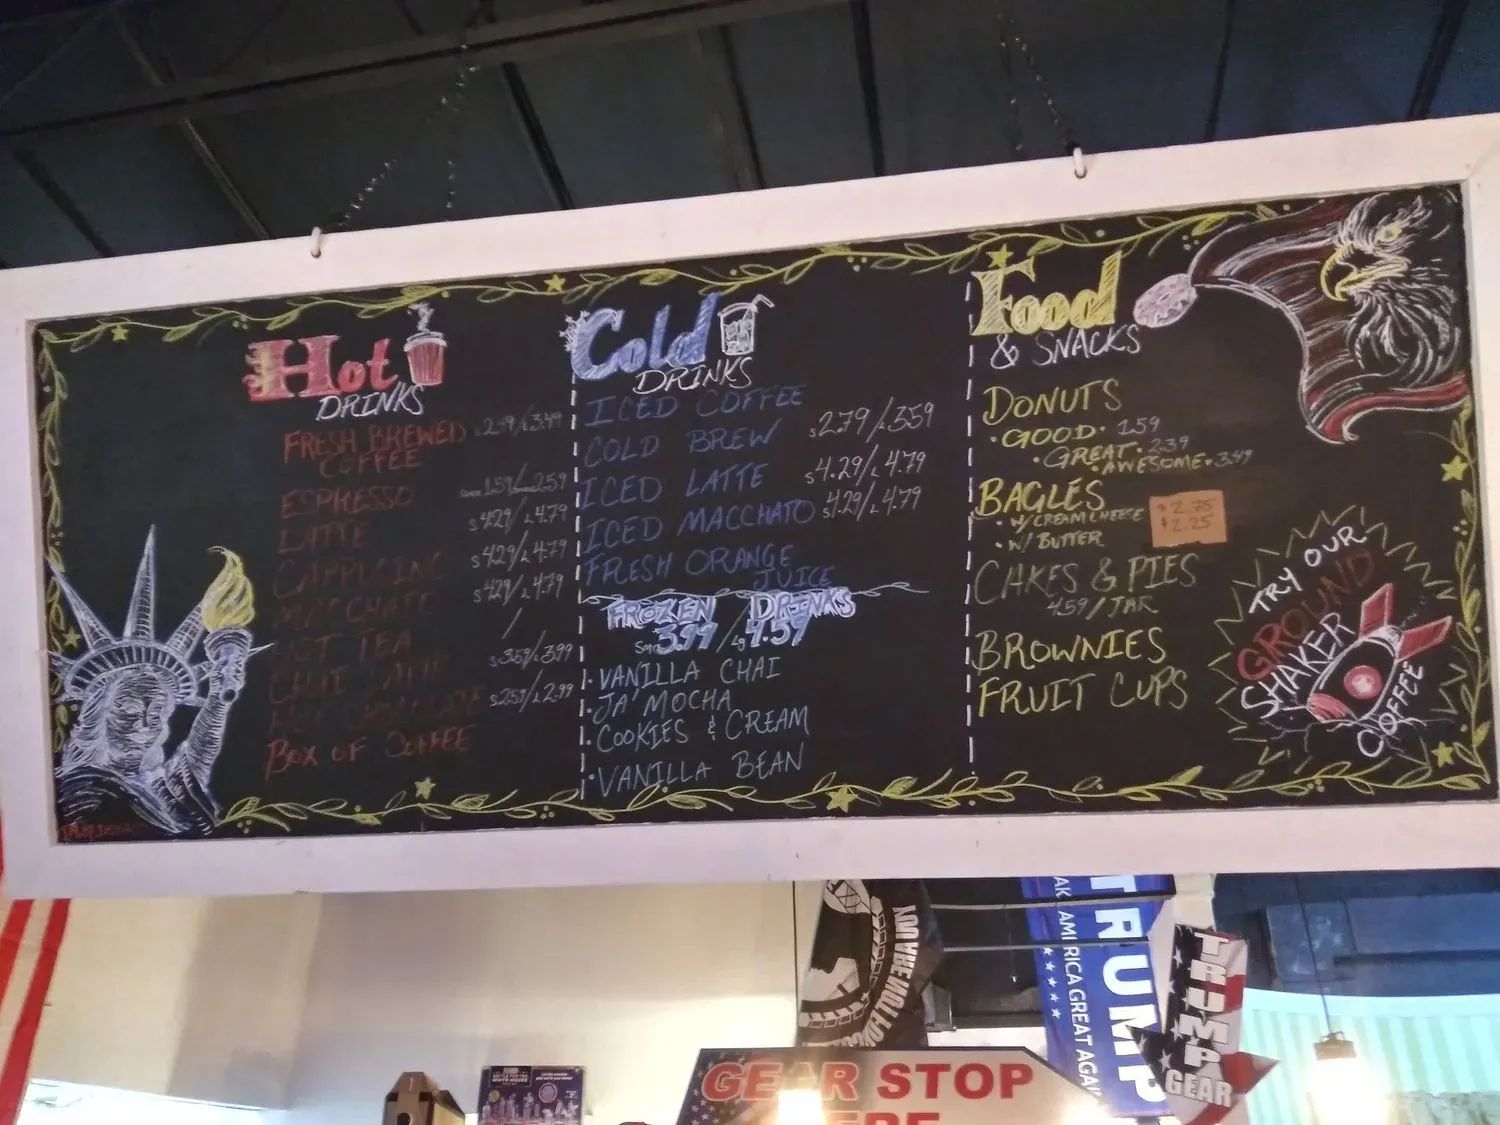 Hot
DRINKS
FRESH BREWED
COFFEE
s2.79/L3.49
ESPRESSO
1.59/2.59
LATTE
s4.29/L4.79
s4.29/L4.79
MACCHATO
s4.29/L4.79
/
TEA
CHAI LATTE
s3.59/L3.99
HOT CHOCOLATE
s2.59/L2.99
BOX OF COFFEE
Cold
DRINKS
ICED COFFEE
COLD BREW s2.79/L3.59
ICED LATTE s4.29/L4.79
ICED MACCHATO s4.29/L4.79
FRESH ORANGE
JUICE
FROZEN DRINKS
Sm 3.99/Lg 4.59
• VANILLA CHAI
• JA'MOCHA
• COOKIES & CREAM
• VANILLA BEAN
Food
& SNACKS
DONUTS
• GOOD • 1.59
• GREAT • 2.39
• AWESOME • 3.49
BAGLES
• W/ CREAM CHEESE $2.75
• W/ BUTTER $2.25
CAKES & PIES
4.59/JAR
BROWNIES
FRUIT CUPS
TRY OUR
GROUND
SHAKER
COFFEE
YOU ARE NOT
TRUMP
MAKE AMERICA GREAT AGAIN
TRUMP
GEAR
GEAR STOP
HERE
WHITE HOUSE